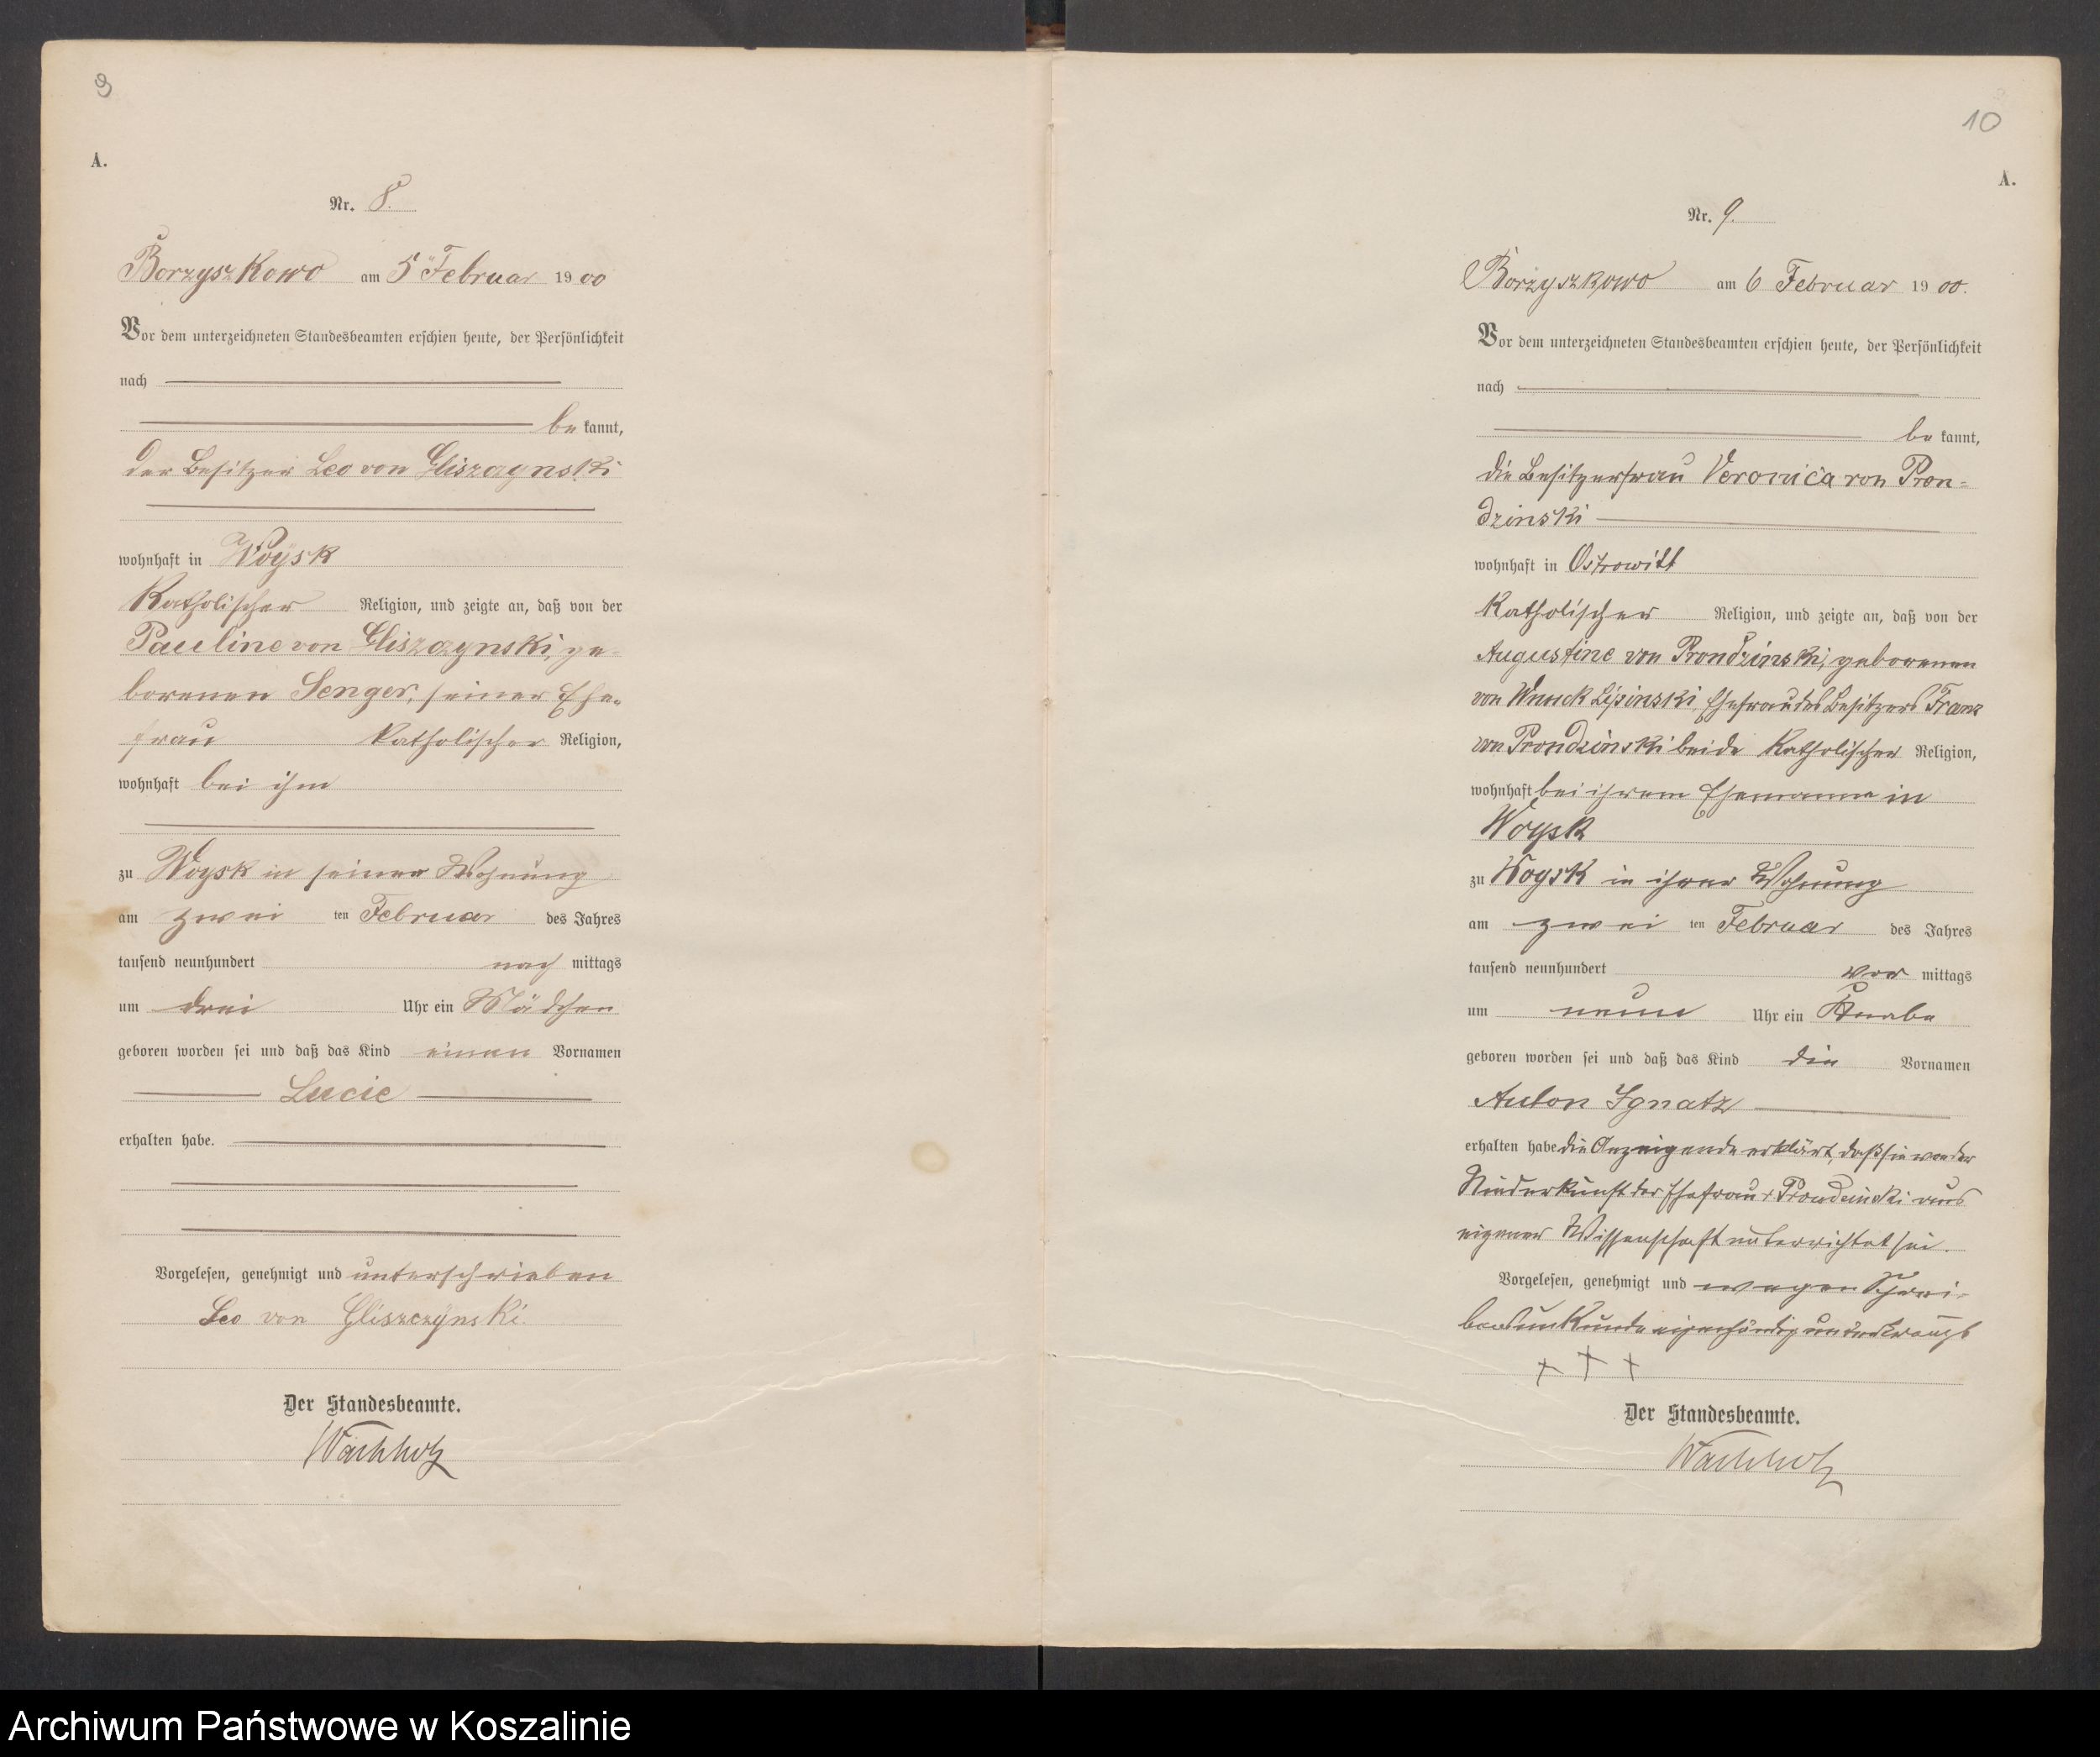 9
A.
Nr. 8.
Borzyszkowo am 5 Februar 1900
Vor dem unterzeichneten Standesbeamten erschien heute, der Persönlichkeit
nach
be kannt,
der Besitzer Leo von Gliszczynski
wohnhaft in Woysk
Katholischer Religion, und zeigte an, daß von der
Pauline von Gliszczynski, ge-
borenen Senger, seiner Ehe-
frau katholischer Religion,
wohnhaft bei ihm
zu Woysk in seiner Wohnung
am zwei ten Februar des Jahres
tausend neunhundert nach mittags
um drei Uhr ein Mädchen
geboren worden sei und daß das Kind einen Vornamen
Lucie
erhalten habe.
Vorgelesen, genehmigt und unterschrieben
Leo von Gliszczynski.
Der Standesbeamte.
Wachholz
10
A.
Nr. 9.
Borzyszkowo am 6 Februar 1900.
Vor dem unterzeichneten Standesbeamten erschien heute, der Persönlichkeit
nach
be kannt,
die Besitzerfrau Veronica von Pron-
dzinski
wohnhaft in Ostrowitt
Katholischer Religion, und zeigte an, daß von der
Augustine von Prondzinski, geborenen
von Wnuck Lipinski, Ehefrau des Besitzers Franz
von Prondzinski beide Katholischer Religion,
wohnhaft bei ihrem Ehemanne in
Woysk
zu Woysk in ihrer Wohnung
am zwei ten Februar des Jahres
tausend neunhundert vor mittags
um neun Uhr ein Knabe
geboren worden sei und daß das Kind die Vornamen
Anton Ignatz
erhalten habe. die Anzeigende erklärt, daß sie von der
Niederkunft der Ehefrau v Prondzinski aus
eigener Wissenschaft unterrichtet sei.
Vorgelesen, genehmigt und wegen Schrei-
bensunkunde eigenhändig unterkreuzt
+ + +
Der Standesbeamte.
Wachholz
Archiwum Państwowe w Koszalinie